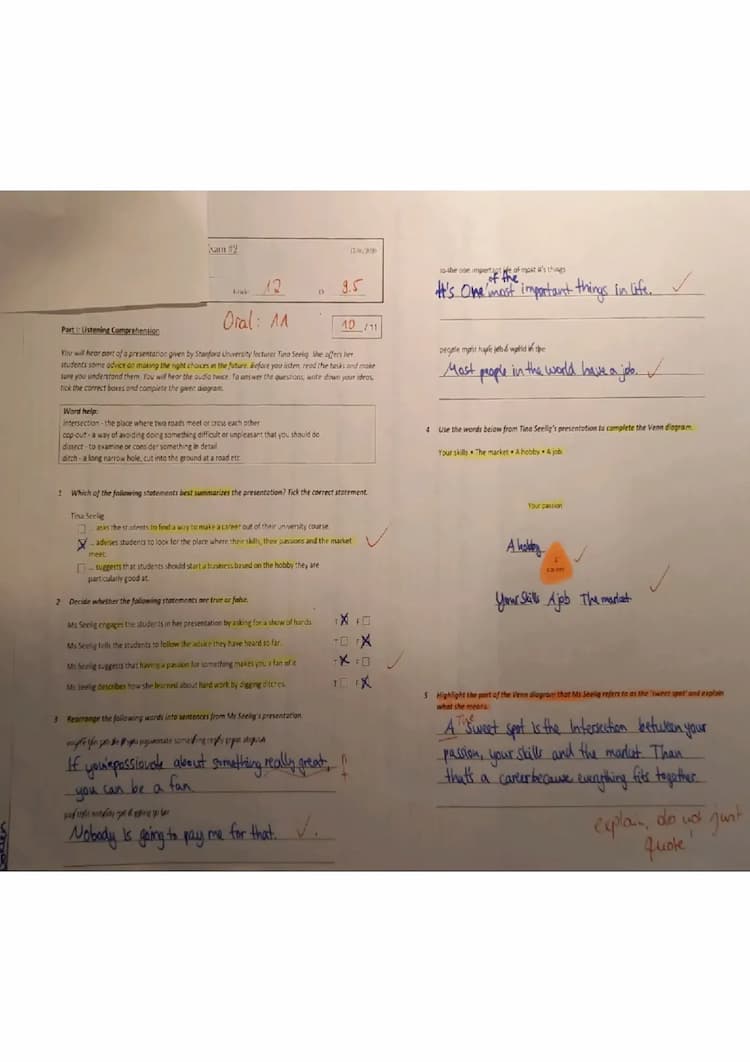 Exam #2
Grade: 12
9.5
Oral: 11
10 /11
Part I: Listening Comprehension
You will hear part of a presentation given by Stanford University lecturer Tina Seelig. She offers her
students some advice on making the right choices in the future. Before you listen, read the tasks and make
sure you understand them. You will hear the audio twice. To answer the questions, write down your ideas,
tick the correct boxes and complete the given diagram.
Word help:
intersection - the place where two roads meet or cross each other
cop-out - a way of avoiding doing something difficult or unpleasant that you should do
dissect - to examine or consider something in detail
ditch - a long narrow hole, cut into the ground at a road etc.
1 Which of the following statements best summarizes the presentation? Tick the correct statement.
Tina Seelig
... asks the students to find a way to make a career out of their university course.
... advises students to look for the place where their skills, their passions and the market
meet.
... suggests that students should start a business based on the hobby they are
particularly good at.
2 Decide whether the following statements are true or false.
Ms Seelig engages the students in her presentation by asking for a show of hands. T F
Ms Seelig tells the students to follow the advice they have heard so far. T F
Ms Seelig suggests that having a passion for something makes you a fan of it. T F
Ms Seelig describes how she learned about hard work by digging ditches. T F
3 Rearrange the following words into sentences from Ms Seelig's presentation.
If you're passionate about something really great,
you can be a fan.
Nobody is going to pay me for that.
important life of most it's things
It's One of the most important things in life.
Most people in the world have a job.
4 Use the words below from Tina Seelig's presentation to complete the Venn diagram.
Your skills • The market • A hobby • A job
Your passion
A hobby
Your Skills A job The market
5 Highlight the part of the Venn diagram that Ms Seelig refers to as the 'sweet spot' and explain
what she means.
A The sweet spot is the Intersection between your
passion, your skills and the market. Than
that's a career because everything fits together.
explain, do not just
quote!